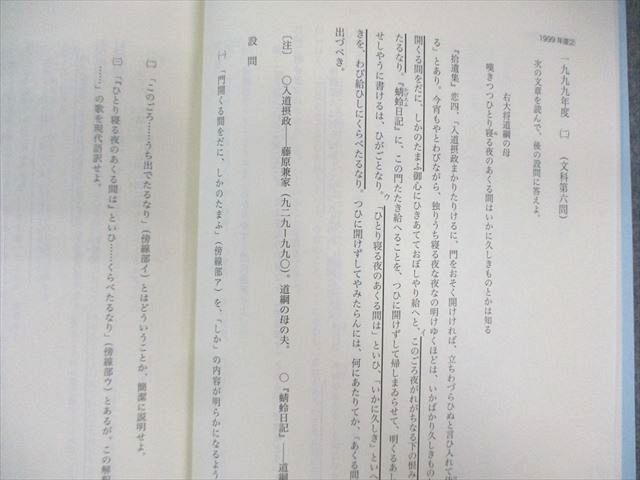 1999年度②
一九九九年度 (二) (文科第六問)
次の文章を読んで、後の設問に答えよ。
右大将道綱の母
嘆きつつひとり寝る夜のあくる間はいかに久しきものとかは知る
『拾遺集』恋四、「入道摂政まかりたりけるに、門をおそく開けければ、立ちわづらひぬと言ひ入れて
る」とあり。今宵もやとわびながら、独りうち寝る夜な夜なの明けゆくほどは、いかばかり久しきもの
開くる間をだに、しかのたまふ御心にひきあてておぼしやり給へと、このごろ夜がれがちなる下の恨み
たるなり。『蜻蛉日記』に、この門たたき給へることを、つひに開けずして帰しまゐらせて、明くるあし
せしやうに書けるは、ひがごとなり。「ひとり寝る夜のあくる間は」といひ、「いかに久しき」といへ
きを、わび給ひしにくらべたるなり。つひに開けずしてやみたらんには、何にあたりてか、「あくる間
出づべき。
〔注〕 ○入道摂政――藤原兼家(九二九―九九〇)。道綱の母の夫。 ○『蜻蛉日記』――道綱
設問
(一) 「門開くる間をだに、しかのたまふ」(傍線部ア)を、「しか」の内容が明らかになるよう
(二) 「このごろ……うち出でたるなり」(傍線部イ)とはどういうことか、簡潔に説明せよ。
(三) 「『ひとり寝る夜のあくる間は』といひ……くらべたるなり」(傍線部ウ)とあるが、この解釈
……」の歌を現代語訳せよ。